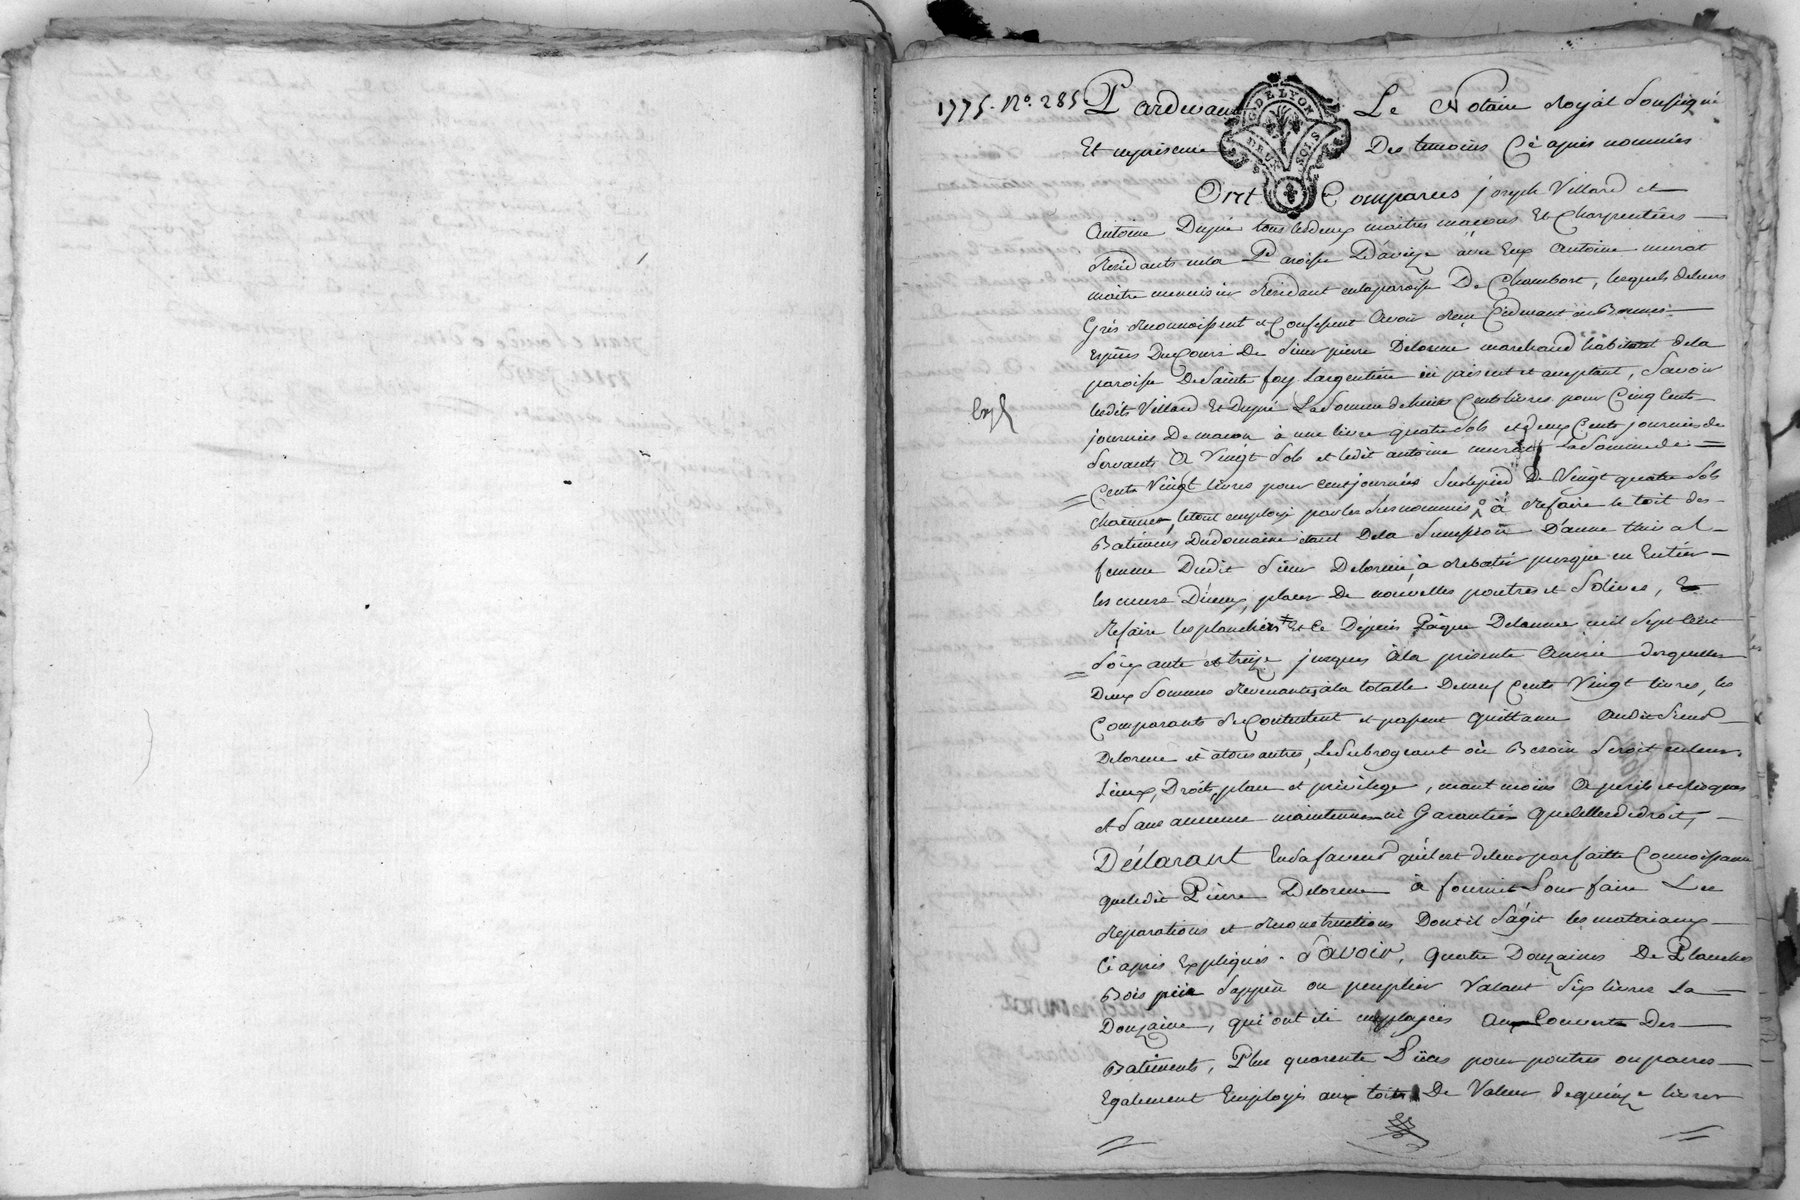 1775. No. 285 Pardevant Le Notaire Royal Soussigné
G. DE LYON
DEUX SOLS
Et en présence Des temoins Cè après nommés
Ont Comparus joseph Villard et
Antoine Dupré tous lesdeux maitres macons Et Charpentiers
Residants enla Paroisse D'aveize avec Eux Antoine murat
maitre menuisier Residant enlaparoisse De Chambost, lesquels deleurs
Grés Reconnoissent et Confessent Avoir Reçu Cèdevant en Bonnes
Espèces Ducours De Sieur pierre Delorme marchand habitant dela
paroisse DeSainte foy Largentiere ici présent et acceptant, Savoir
lesdits Villard Et Dupré La Somme dehuit Centslivres pour Cinq Cents
journées Demacon à une livre quatre Sols et deux Cents journées de
Servants A Vingt Sols et ledit antoine murat La Somme de
Cents Vingt livres pour cent journées Surlepied De Vingt quatre Sols
chacunes, letout employé parles susnommés à Refaire le toit des
Batiments Dudomaine étant Dela Succession D'anne
femme Dudit Sieur Delorme, à Rebatir presque en Entier
les murs D'iceux, placer De nouvelles poutres et Solives, &
Refaire les planchers Et Ce Depuis Pâque Delannée mil Sept Cent
Soixante et treize jusques àla présente Année desquelles
Deux Sommes Revenantes àla totalle Deneuf Cents Vingt livres, les
Comparants Secontentent et passent quittance audit Sieur
Delorme et àtous autres, Lesubrogeant où Besoin Seroit enleurs
Lieux, Droits, place et privilege, néant moins A perils et risques
et Sans aucune maintenue ni Garantie quelellesdedroit,
Déclarant EnSafaveur qu'ilest deleur parfaitte Connoissance
queledit Pierre Delorme à fournit pour faire Les
Reparations et Reconstructions Dontil S'agit les materiaux
Cè après Expliqués. SAVOIR, quatre Douzaines De Planches
Bois Sappin ou peuplier Valant Six livres La
Douzaine, qui ont été employées Aux Couverts Des
Batiments, Plus quarente Pièces pour poutres ou pannes
Egalement Employés aux toits De Valeur dequinze livres